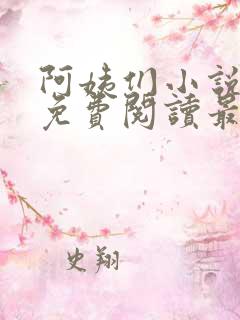 阿姨们小說
免費閱讀最
史翔